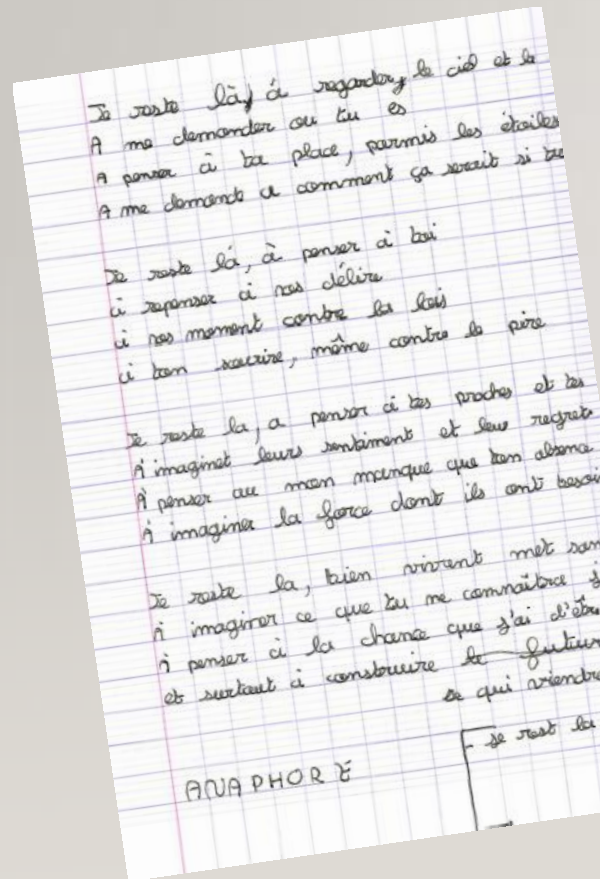 Je reste là, à regarder, le ciel et le
A me demander ou tu es
A penser à ta place, parmis les étoiles
A me demande a comment ça serait si tu
Je reste lá, à penser à toi
à repenser à nos délire
à nos moment contre la lois
à ton sourire, même contre le pire
Je reste la, a penser à tes proches et tes
A imaginet leurs sentiment et leur regrets
A penser au mon manque que ton absence
A imaginer la force dont ils ont besoin
Je reste la, bien vivent met san
A imaginer ce que tu me connaitra s
A penser à la chance que j'ai d'être
et surtout à construire le futur
se qui viendre
se rest la
ANAPHORE